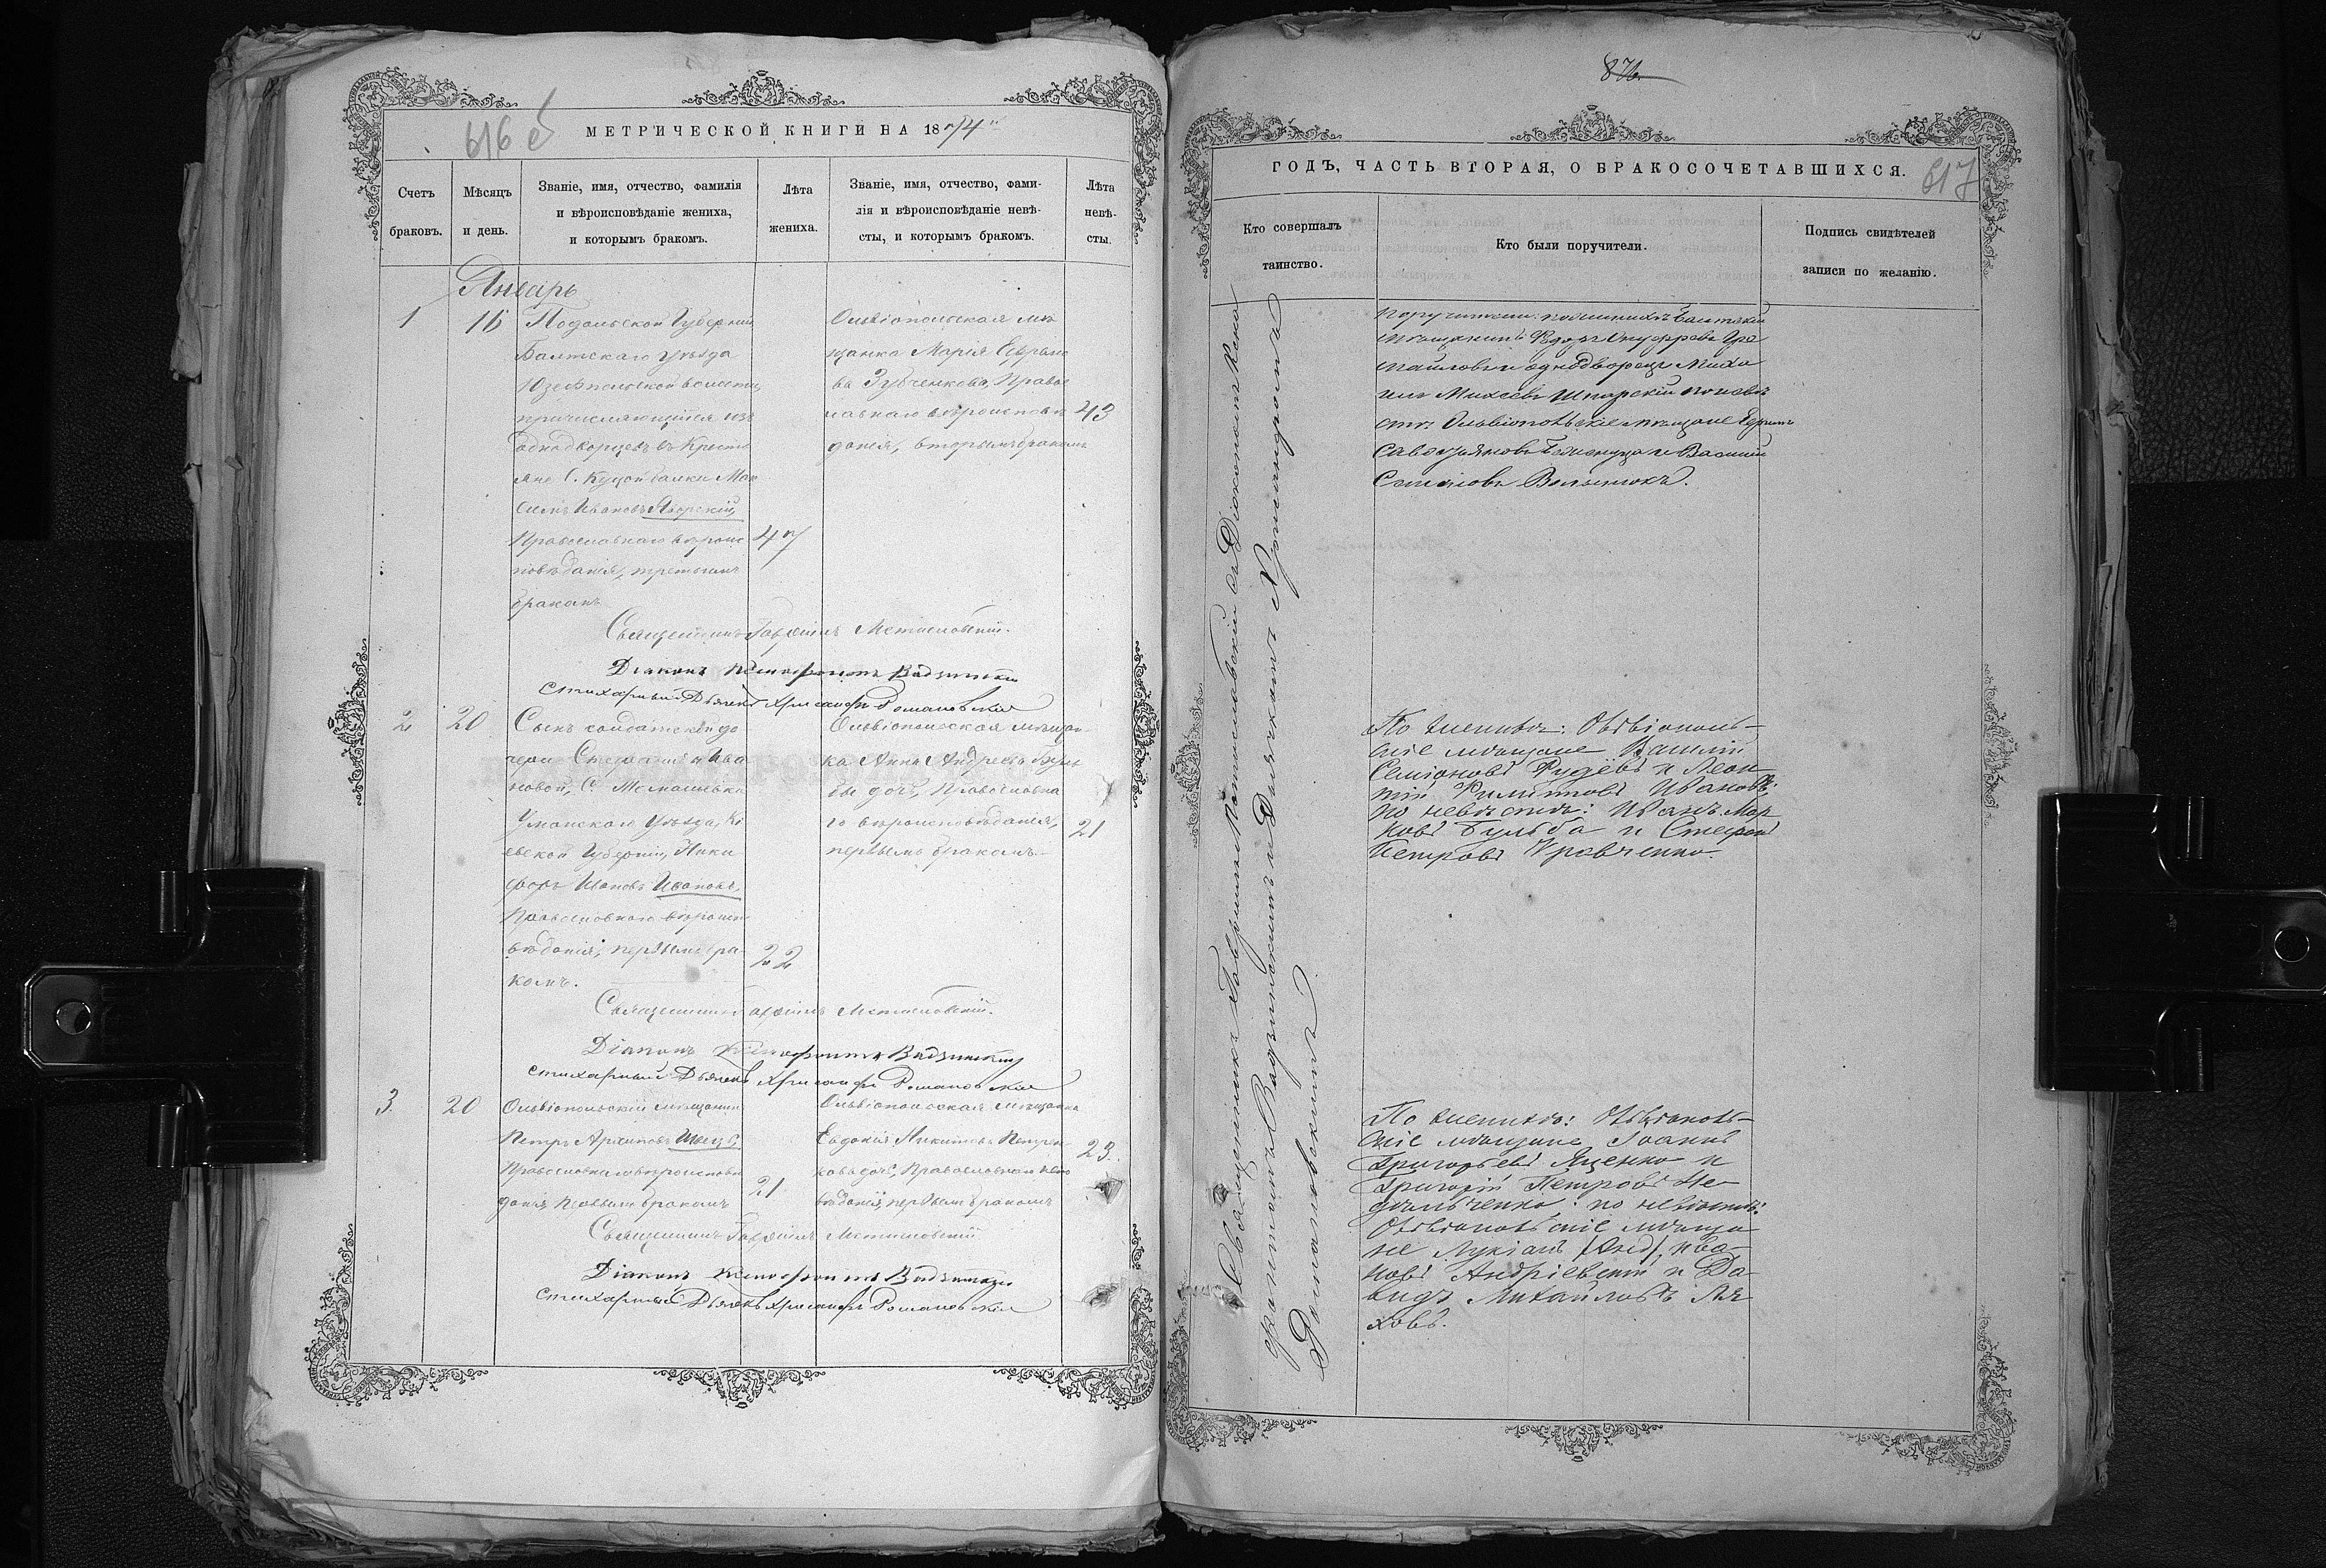 616 об
МЕТРИЧЕСКОЙ КНИГИ НА 1874
Счетъ браковъ.
Мѣсяцъ и день.
Званіе, имя, отчество, фамилія
и вѣроисповѣданіе жениха,
и которымъ бракомъ.
Лѣта жениха.
Званіе, имя, отчество, фами-
лія и вѣроисповѣданіе невѣ-
сты, и которымъ бракомъ.
Лѣта невѣ- сты.
Январь
1
16
Подольской Губерніи
Балтскаго уѣзда
Юзефпольской волости,
причисляющійся изъ
однодворцевъ въ кресть
яне С. Куцой балки Мак
симъ Ивановъ Яворскій,
Православнаго вѣроис
повѣданія, третьимъ
бракомъ
47
Ольвіопольская мѣ
щанка Марія Ефремо
ва Зубченкова, Правос
лавнаго вѣроисповѣ
данія, вторымъ бракомъ
43
Священникъ Гавріилъ Мстиславскій.
Діаконъ Ксенофонтъ Вадзинскій
Стихарный Дьячекъ Хрисанфъ Романовскій
2
20
Сынъ солдатской до
чери Стефаніи Ива
новой, С.
Уманскаго уѣзда, Кі
евской Губерніи, Ники
форъ Ивановъ Ивановъ,
Православнаго вѣроиспо
вѣданія, первымъ бра
комъ.
22
Ольвіопольская мѣщан
ка Анна Андреева Буль
бы дочь, Православна
го вѣроисповѣданія,
первымъ бракомъ.
21
Священникъ Гавріилъ Мстиславскій.
Діаконъ Ксенофонтъ Вадзинскій
Стихарный Дьячекъ Хрисанфъ Романовскій
3.
20
Ольвіопольскій мѣщанинъ
Петръ Архиповъ Швецъ,
Православнаго вѣроисповѣ
данія первымъ бракомъ
21
Ольвіопольская мѣщанка
Евдокія Никитова Петрен
кова дочь, Православнаго
вѣданія, первымъ бракомъ
23.
Священникъ Гавріилъ Мстиславскій
Діаконъ Ксенофонтъ Вадзинскій
Стихарный Дьячекъ Хрисанфъ Романовскій
876
617
ГОДЪ, ЧАСТЬ ВТОРАЯ, О БРАКОСОЧЕТАВШИХСЯ.
Кто совершалъ таинство.
Кто были поручители.
Подпись свидѣтелей
записи по желанію.
Священникъ Гавріилъ Мстиславскій съ Діакономъ Ксено
фонтомъ Вадзинскимъ и Дьячкомъ Хрисанфомъ
Романовскимъ
Поручители: по женихѣ Балтскій
мѣщанинъ Ѳедоръ Онуфріевъ
и однодворецъ Миха
илъ Михеевъ Шпарскій по невѣ
стѣ Ольвіопольскіе мѣщане Ефремъ
Савельяновъ и Василій
Семеновъ Волынюкъ.
По женихѣ: Ольвіополь-
скіе мѣщане Василій
Семіоновъ Рудевъ и Леон
тій Филиповъ Ивановъ;
по невѣстѣ: Иванъ Мар
ковъ Бульба и Стефанъ
Петровъ Кравченко.
По женихѣ: Ольвіополь-
скіе мѣщане Іоаннъ
Григорьевъ Яценко и
Григорій Петровъ Не-
дѣльченко: по невѣстѣ:
Ольвіопольскіе мѣща
не Лукіанъ Ива-
новъ Андріевскій и Да
видъ Михайловъ Ля
ховъ.